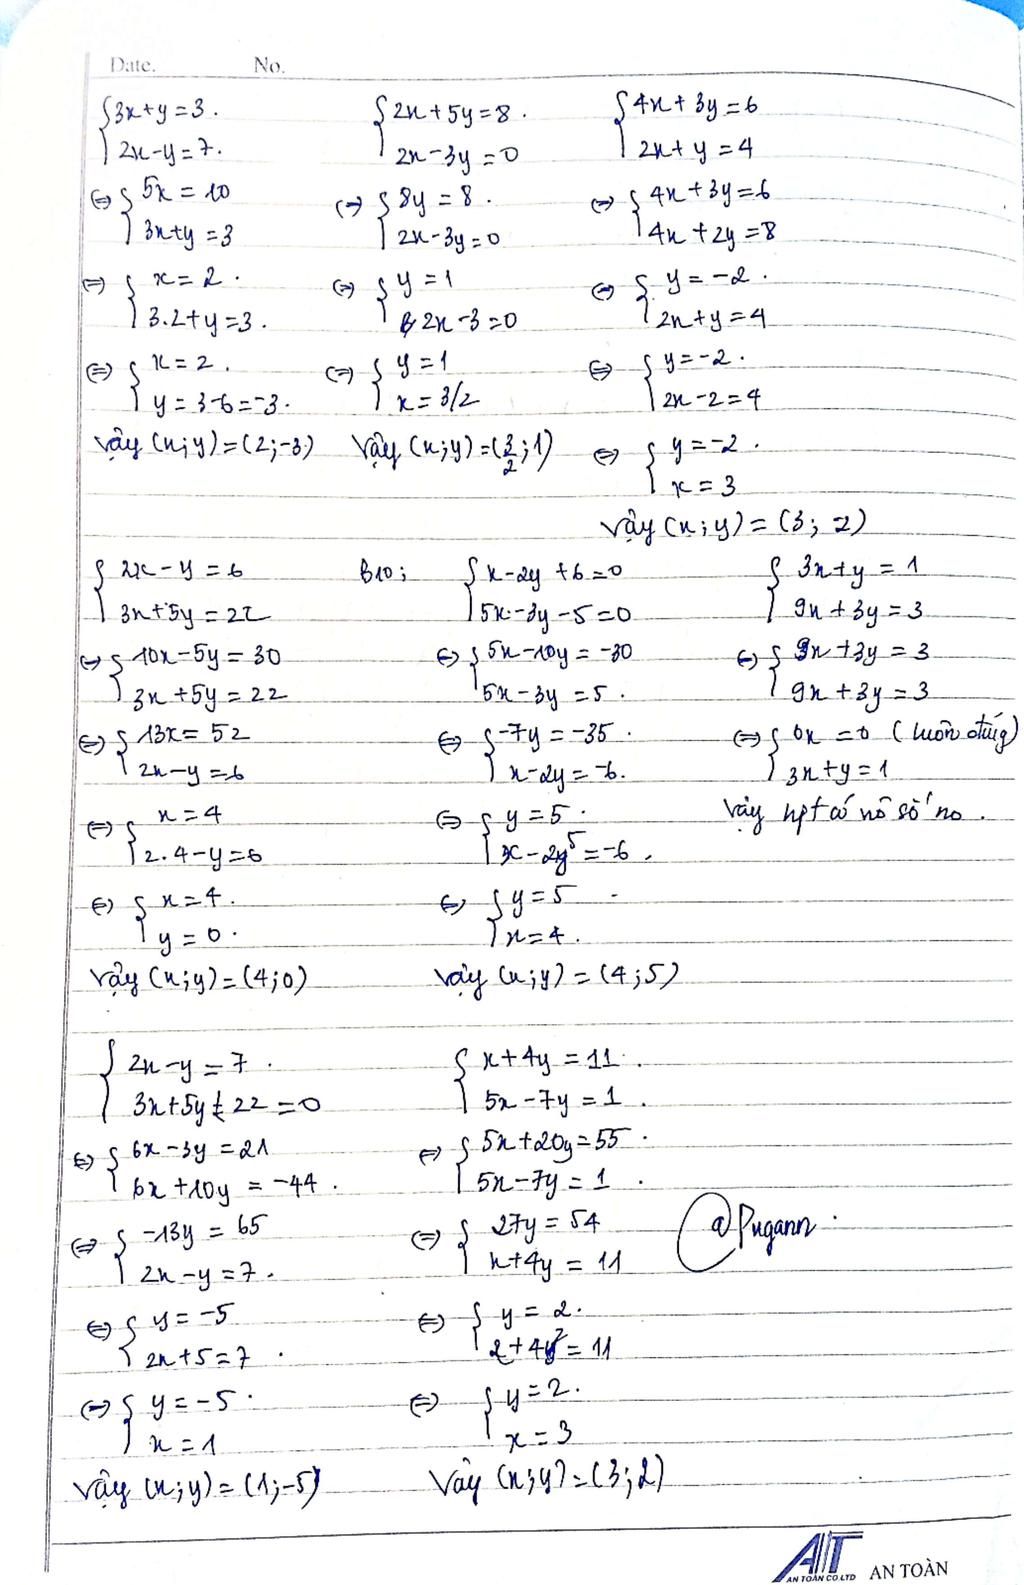 Date. No.
{3x+y=3.
{2x-y=7.
⇔ {5x=10
{3x+y=3
⇔ {x=2.
{3.2+y=3.
⇔ {x=2.
{y=3-6=-3.
Vậy (x;y)=(2;-3)
{2x+5y=8.
{2x-3y=0
⇔ {8y=8.
{2x-3y=0
⇔ {y=1
{2x-3=0
⇔ {y=1
{x=3/2
Vậy (x;y)=(3/2;1)
{4x+3y=6
{2x+y=4
⇔ {4x+3y=6
{4x+2y=8
⇔ {y=-2.
{2x+y=4
⇔ {y=-2.
{2x-2=4
⇔ {y=-2.
{x=3
Vậy (x;y)=(3; 2)
{2x-y=6
{3x+5y=22
⇔ {10x-5y=30
{3x+5y=22
⇔ {13x=52
{2x-y=6
⇔ {x=4
{2.4-y=6
⇔ {x=4.
{y=0.
Vậy (x;y)=(4;0)
B10;
{x-2y+6=0
{5x-3y-5=0
⇔ {5x-10y=-30
{5x-3y=5.
⇔ {-7y=-35.
{x-2y=-6.
⇔ {y=5.
{x-2.5=-6.
⇔ {y=5
{x=4.
Vậy (x;y)=(4;5)
{3x+y=1
{9x+3y=3
⇔ {9x+3y=3
{9x+3y=3
⇔ {0x=0 (luôn đúng)
{3x+y=1
Vậy hpt có vô số no.
{2x-y=7.
{3x+5y+22=0
⇔ {6x-3y=21
{6x+10y=-44.
⇔ {-13y=65
{2x-y=7.
⇔ {y=-5
{2x+5=7.
⇔ {y=-5.
{x=1
Vậy (x;y)=(1;-5)
{x+4y=11.
{5x-7y=1.
⇔ {5x+20y=55.
{5x-7y=1.
⇔ {27y=54
{x+4y=11
⇔ {y=2.
{2+4.2=11
⇔ {y=2.
{x=3
Vậy (x;y)=(3;2)
@Pugann.
AT
AN TOÀN CO.LTD
AN TOÀN